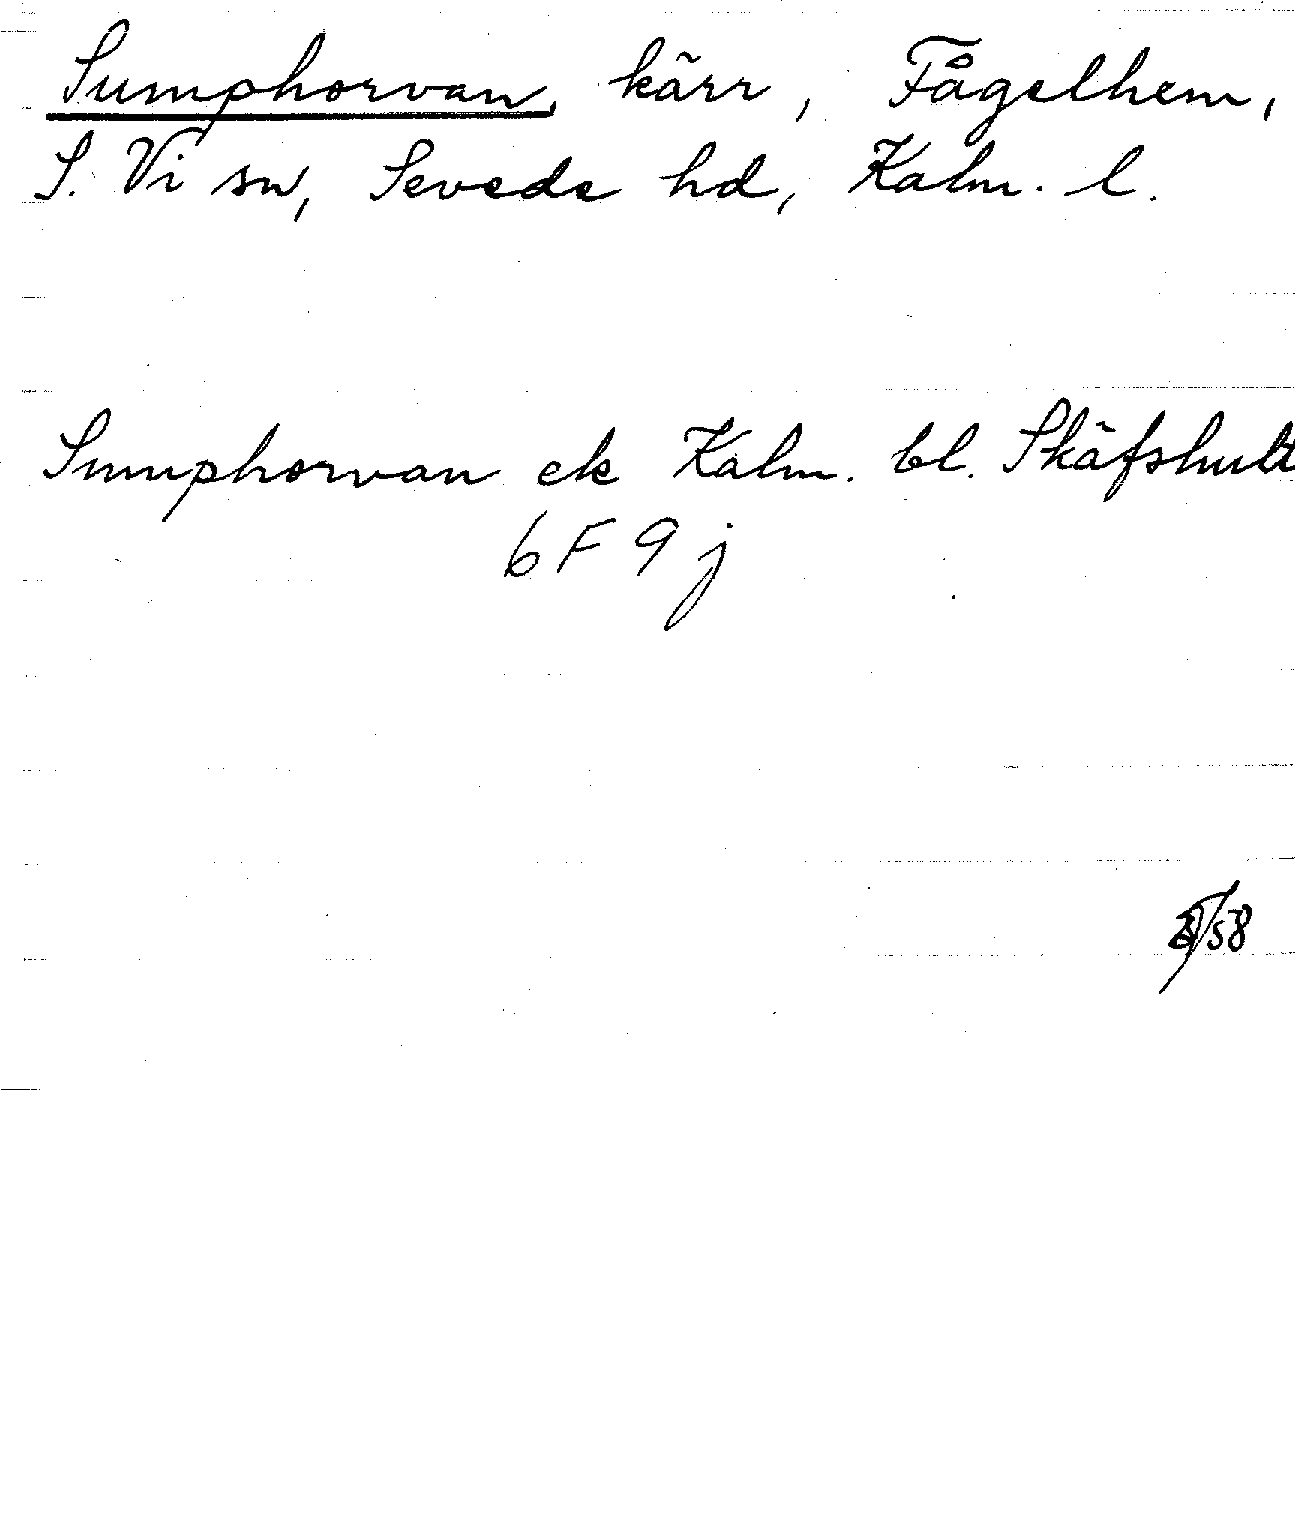 Sumphorvan, kärr, Fågelhem,
S. Vi sn, Sevede hd, Kalm. l.
Sumphorvan ek Kalm. bl. Skäfshult
6 F 9 j